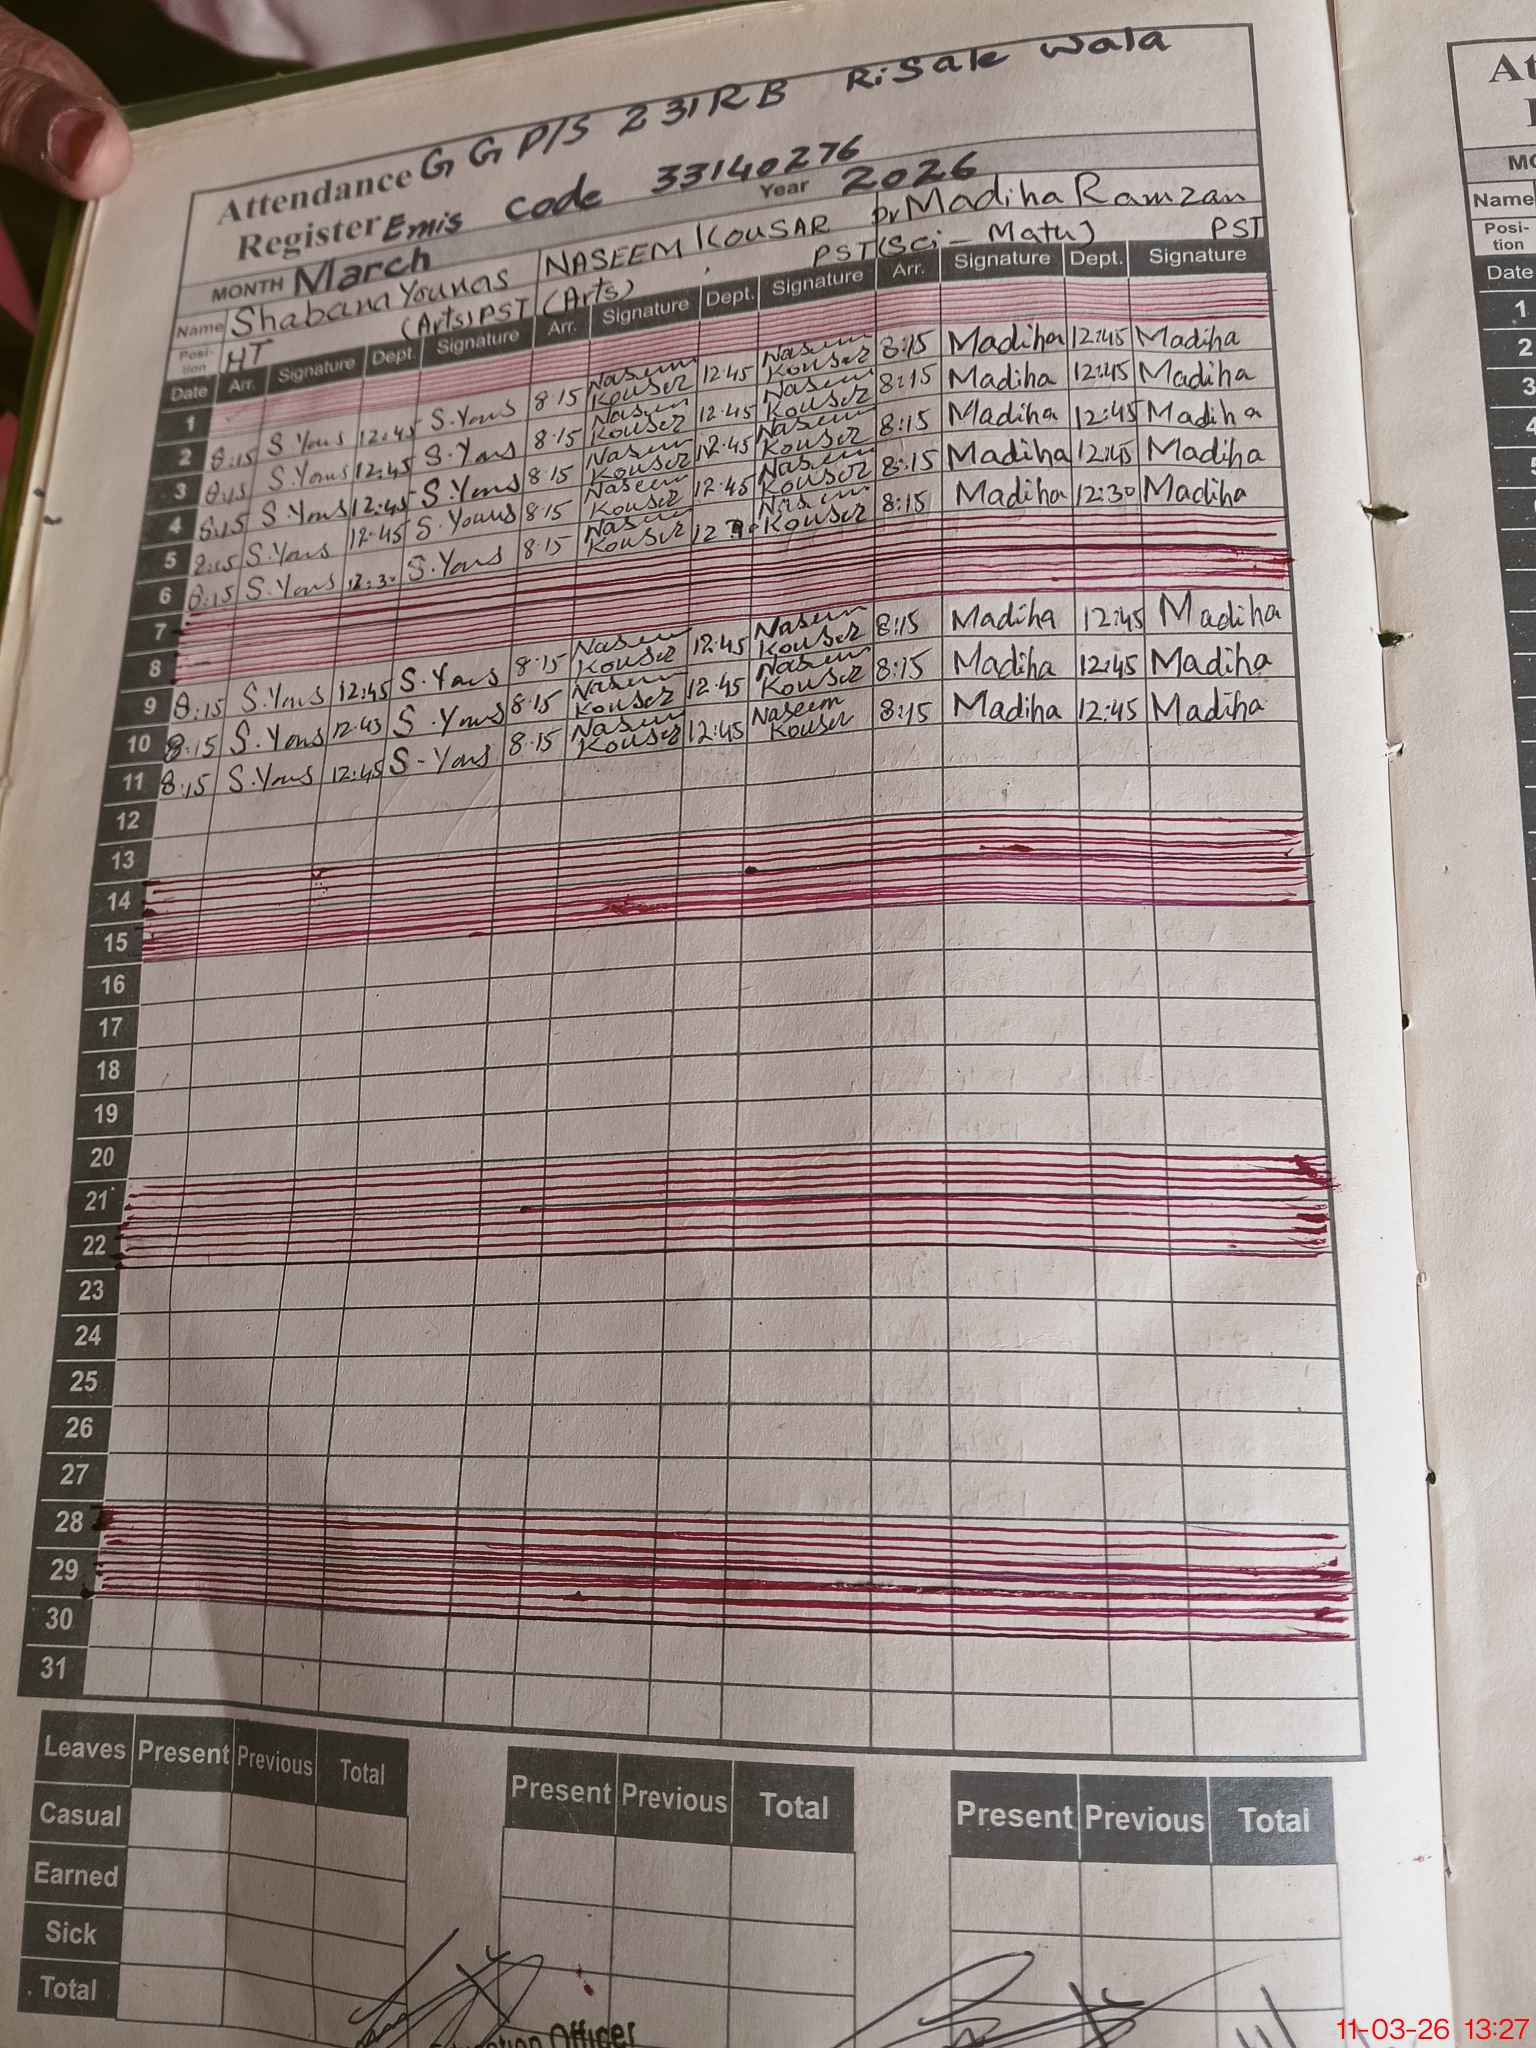 Attendance G G P/S 231 R B Risale Wala
Register Emis Code 33140276
MONTH March Year 2026
Name Shabana Younas NASEEM KOUSAR Madiha Ramzan
Position HT (Arts) PST (Arts) PST (Sci - Math) PST
Date Arr. Signature Dept. Signature Arr. Signature Dept. Signature Arr. Signature Dept. Signature
1
2 8:15 S.Yons 12:45 S.Yons 8:15 Naseem Kouser 12:45 Naseem Kouser 8:15 Madiha 12:45 Madiha
3 8:15 S.Yons 12:45 S.Yons 8:15 Naseem Kouser 12:45 Naseem Kouser 8:15 Madiha 12:45 Madiha
4 8:15 S.Yons 12:45 S.Yons 8:15 Naseem Kouser 12:45 Naseem Kouser 8:15 Madiha 12:45 Madiha
5 8:15 S.Yons 12:45 S.Youns 8:15 Naseem Kouser 12:45 Naseem Kouser 8:15 Madiha 12:45 Madiha
6 8:15 S.Yons 12:30 S.Yons 8:15 Naseem Kouser Naseem Kouser 8:15 Madiha 12:30 Madiha
7
8
9 8:15 S.Yons 12:45 S.Yons 8:15 Naseem Kouser 12:45 Naseem Kouser 8:15 Madiha 12:45 Madiha
10 8:15 S.Yons 12:45 S.Yons 8:15 Naseem Kouser 12:45 Naseem Kouser 8:15 Madiha 12:45 Madiha
11 8:15 S.Yons 12:45 S-Yons 8:15 Naseem Kouser 12:45 Naseem Kouser 8:15 Madiha 12:45 Madiha
12
13
14
15
16
17
18
19
20
21
22
23
24
25
26
27
28
29
30
31
Leaves Present Previous Total Present Previous Total Present Previous Total
Casual
Earned
Sick
Total
Officer
At
Name
Posi-
tion
Date
1
2
3
4
5
11-03-26 13:27